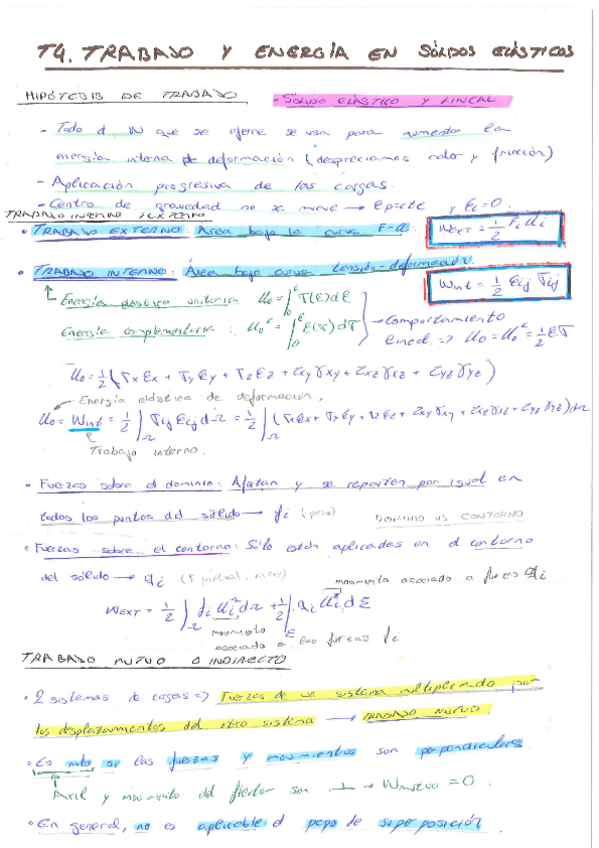 T4. TRABAJO Y ENERGÍA EN SÓLIDOS ELÁSTICOS
HIPÓTESIS DE TRABAJO
• SÓLIDO ELÁSTICO Y LINEAL
- Todo el W que se ejerce se usa para aumentar la
energía interna de deformación (despreciamos calor y fricción)
- Aplicación progresiva de las cargas.
- Centro de gravedad no se mueve → Ep=cte y Ec=0.
TRABAJO INTERNO Y EXTERNO
• TRABAJO EXTERNO: Área bajo la curva F-u:
W_EXT = 1/2 Fi ui
• TRABAJO INTERNO: Área bajo curva tensión-deformación.
Wint = 1/2 εij σij
Energía elástica unitaria U₀ = ∫₀^ε σ(ε)dε
Energía complementaria: U₀ᶜ = ∫₀ ε(σ)dσ
→ Comportamiento
lineal => U₀ = U₀ᶜ = 1/2 εσ
U₀ = 1/2 (σx εx + σy εy + σz εz + τxy γxy + τxz γxz + τyz γyz)
Energía elástica de deformación.
U₀ = Wint = 1/2 ∫Ω σij εij dΩ = 1/2 ∫Ω (σx εx + σy εy + σz εz + τxy γxy + τxz γxz + τyz γyz) dΩ
Trabajo interno.
• Fuerzas sobre el dominio: Afectan y se reparten por igual en
todos los puntos del sólido → fi (peso)
DOMINIO VS CONTORNO
• Fuerzas sobre el contorno: Sólo están aplicadas en el contorno
del sólido → qi (F puntual,
movimiento asociado a fuerzas qi
W_EXT = 1/2 ∫Ω fi ui dΩ + 1/2 ∫ qi ui d
movimiento
asociado a las fuerzas fi
TRABAJO MUTUO O INDIRECTO
• 2 sistemas de cargas => Fuerzas de un sistema multiplicado por
los desplazamientos del otro sistema → TRABAJO MUTUO.
• Es nulo si las fuerzas y movimientos son perpendiculares.
Axil y movimiento del flector son ⊥ → Wmutuo = 0.
• En general, no es aplicable el ppo de superposición